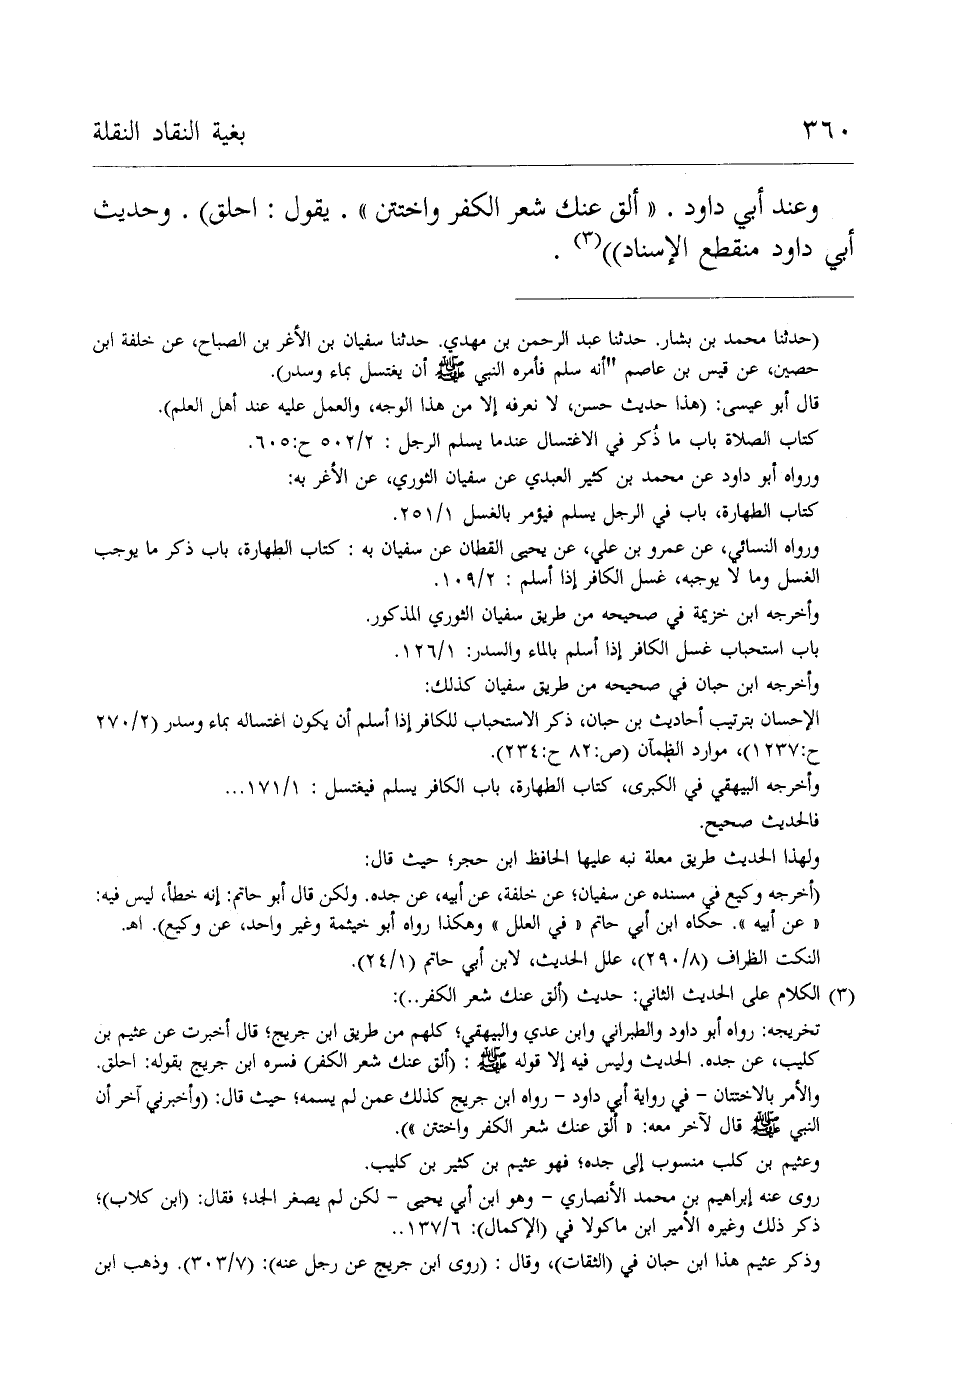 ٣٦٠ بغية النقاد النقلة
وعند أبي داود . « ألق عنك شعر الكفر واختتن » . يقول : احلق) . وحديث
أبي داود منقطع الإسناد))(٣) .
(حدثنا محمد بن بشار. حدثنا عبد الرحمن بن مهدي. حدثنا سفيان بن الأغر بن الصباح، عن خلفة ابن
حصين، عن قيس بن عاصم "أنه سلم فأمره النبي ﷺ أن يغتسل بماء وسدر).
قال أبو عيسى: (هذا حديث حسن، لا نعرفه إلا من هذا الوجه، والعمل عليه عند أهل العلم).
كتاب الصلاة باب ما ذُكر في الاغتسال عندما يسلم الرجل : ٥٠٢/٢ ح:٦٠٥.
ورواه أبو داود عن محمد بن كثير العبدي عن سفيان الثوري، عن الأغر به:
كتاب الطهارة، باب في الرجل يسلم فيؤمر بالغسل ٢٥١/١.
ورواه النسائي، عن عمرو بن علي، عن يحيى القطان عن سفيان به : كتاب الطهارة، باب ذكر ما يوجب
الغسل وما لا يوجبه، غسل الكافر إذا أسلم : ١٠٩/٢.
وأخرجه ابن خزيمة في صحيحه من طريق سفيان الثوري المذكور.
باب استحباب غسل الكافر إذا أسلم بالماء والسدر: ١٢٦/١.
وأخرجه ابن حبان في صحيحه من طريق سفيان كذلك:
الإحسان بترتيب أحاديث بن حبان، ذكر الاستحباب للكافر إذا أسلم أن يكون اغتساله بماء وسدر (٢٧٠/٢
ح:١٢٣٧)، موارد الظمآن (ص:٨٢ ح:٢٣٤).
وأخرجه البيهقي في الكبرى، كتاب الطهارة، باب الكافر يسلم فيغتسل : ١٧١/١...
فالحديث صحيح.
ولهذا الحديث طريق معلة نبه عليها الحافظ ابن حجر؛ حيث قال:
(أخرجه وكيع في مسنده عن سفيان؛ عن خلفة، عن أبيه، عن جده. ولكن قال أبو حاتم: إنه خطأ، ليس فيه:
« عن أبيه ». حكاه ابن أبي حاتم « في العلل » وهكذا رواه أبو خيثمة وغير واحد، عن وكيع). اهـ.
النكت الظراف (٢٩٠/٨)، علل الحديث، لابن أبي حاتم (٢٤/١).
(٣) الكلام على الحديث الثاني: حديث (ألق عنك شعر الكفر..):
تخريجه: رواه أبو داود والطبراني وابن عدي والبيهقي؛ كلهم من طريق ابن جريج؛ قال أخبرت عن عثيم بن
كليب، عن جده. الحديث وليس فيه إلا قوله ﷺ : (ألق عنك شعر الكفر) فسره ابن جريج بقوله: احلق.
والأمر بالاختتان - في رواية أبي داود - رواه ابن جريج كذلك عمن لم يسمه؛ حيث قال: (وأخبرني آخر أن
النبي ﷺ قال لآخر معه: « ألق عنك شعر الكفر واختتن »).
وعثيم بن كلب منسوب إلى جده؛ فهو عثيم بن كثير بن كليب.
روى عنه إبراهيم بن محمد الأنصاري - وهو ابن أبي يحيى - لكن لم يصغر الجد؛ فقال: (ابن كلاب)؛
ذكر ذلك وغيره الأمير ابن ماكولا في (الإكمال): ١٣٧/٦..
وذكر عثيم هذا ابن حبان في (الثقات)، وقال : (روى ابن جريج عن رجل عنه): (٣٠٣/٧). وذهب ابن